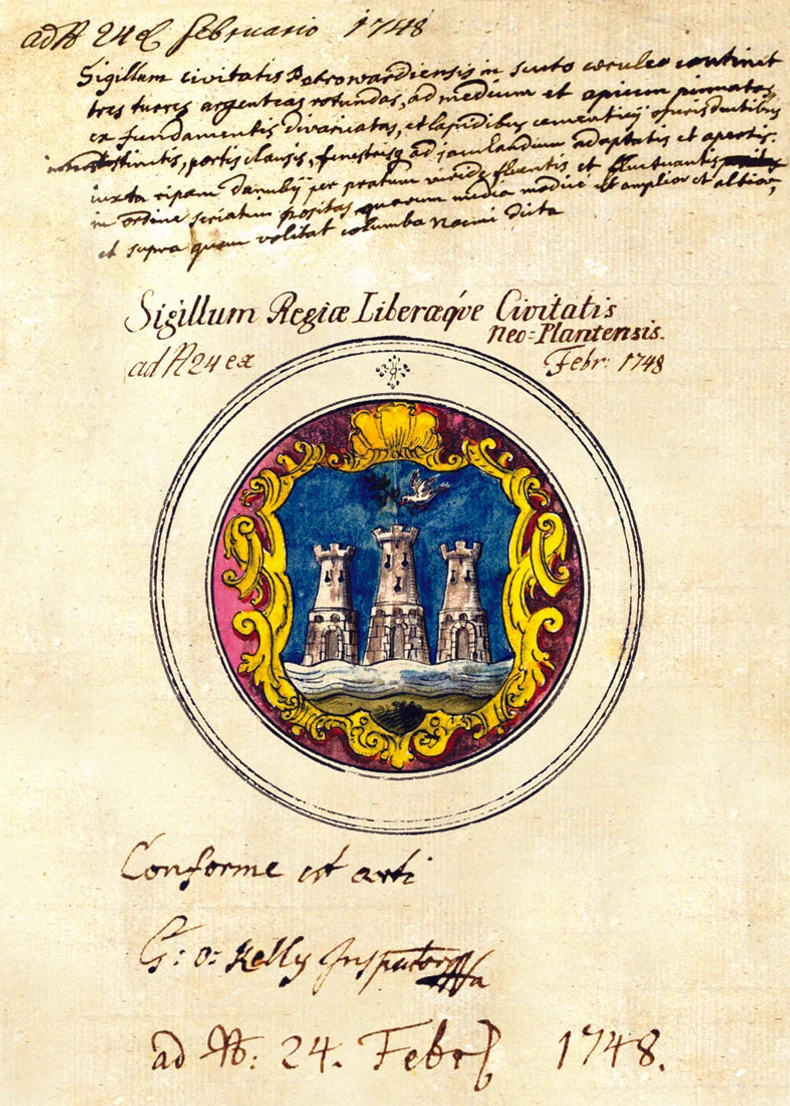 ad № 24 ex februario 1748
Sigillum civitatis Petrowardiensis in scuto coeruleo continet
tres turres argenteas rotundas, ad medium et apicem pinnatas,
ex fundamentis divaricatas, et lapidibus
portis clausis, fenestrisq ad jaculandum adaptatis et apertis.
iuxta ripam danubij per pratum viride fluentis et fluctuantis
in ordine seriatim positas quarum media modice et amplior et altior,
et supra quam volitat columba Noemi dicta
Sigillum Regiæ Liberæq́ve Civitatis
Neo=Plantensis.
ad № 24 ex Febr: 1748
Conforme est arti
G: O: Kelly Inspector
ad №: 24. Febr 1748.